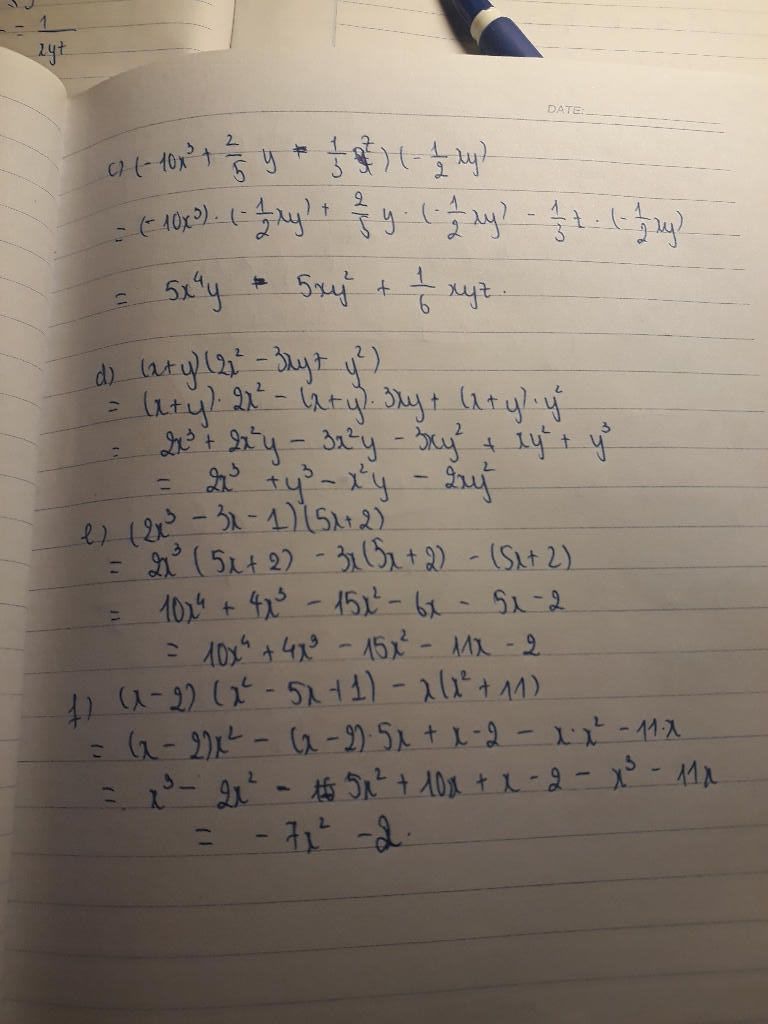 = 1/2yz
DATE:
c) (-10x³ + 2/5 y - 1/3 z) (-1/2 xy)
= (-10x³) · (-1/2 xy) + 2/5 y · (-1/2 xy) - 1/3 z · (-1/2 xy)
= 5x⁴y - 5xy² + 1/6 xyz.
d) (x+y)(2x² - 3xy + y²)
= (x+y) · 2x² - (x+y) · 3xy + (x+y) · y²
= 2x³ + 2x²y - 3x²y - 3xy² + xy² + y³
= 2x³ + y³ - x²y - 2xy²
e) (2x³ - 3x - 1)(5x+2)
= 2x³(5x+2) - 3x(5x+2) - (5x+2)
= 10x⁴ + 4x³ - 15x² - 6x - 5x - 2
= 10x⁴ + 4x³ - 15x² - 11x - 2
f) (x-2) (x² - 5x + 1) - x(x² + 11)
= (x-2)x² - (x-2) · 5x + x - 2 - x · x² - 11 · x
= x³ - 2x² - 5x² + 10x + x - 2 - x³ - 11x
= -7x² - 2.